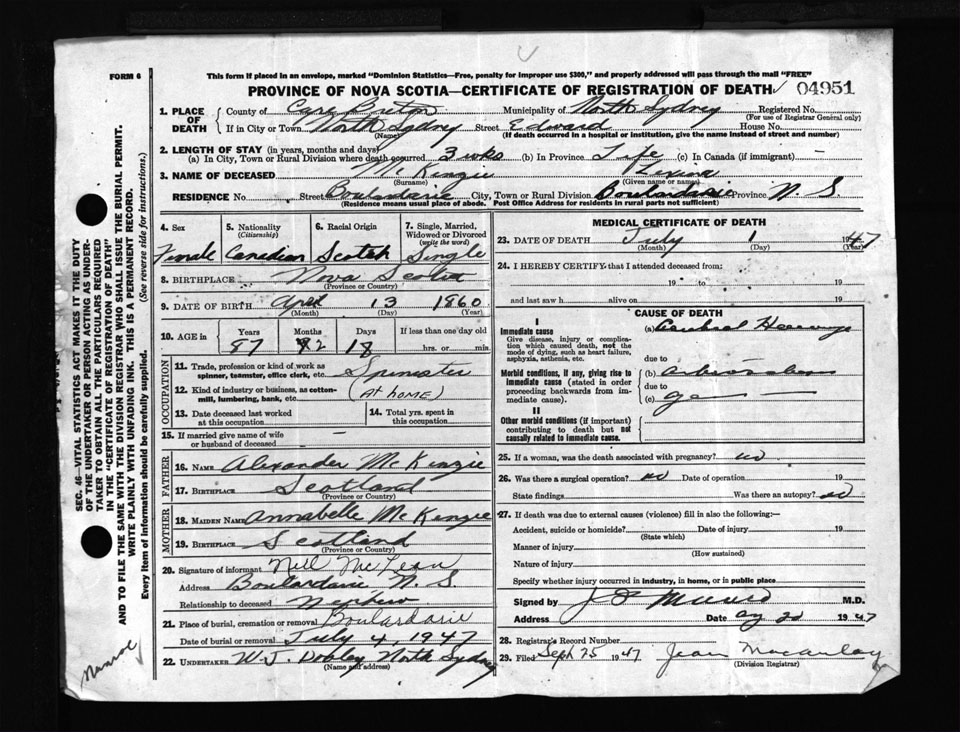 FORM 6
This form if placed in an envelope, marked "Dominion Statistics—Free, penalty for improper use $300," and properly addressed will pass through the mail "FREE"
PROVINCE OF NOVA SCOTIA—CERTIFICATE OF REGISTRATION OF DEATH 04951
1. PLACE OF DEATH County of Cape Breton Municipality of North Sydney Registered No.
(For use of Registrar General only)
If in City or Town North Sydney Street Edward House No.
(Name) (If death occurred in a hospital or institution, give the name instead of street and number)
2. LENGTH OF STAY (in years, months and days)
(a) In City, Town or Rural Division where death occurred 3 wks (b) In Province Life (c) In Canada (if immigrant) —
3. NAME OF DECEASED McKenzie Lexina
(Surname) (Given name or names)
RESIDENCE No. Street Boulardarie City, Town or Rural Division Boulardarie Province N. S
(Residence means usual place of abode. Post Office Address for residents in rural parts not sufficient)
4. Sex 5. Nationality (Citizenship) 6. Racial Origin 7. Single, Married, Widowed or Divorced (write the word)
Female Canadian Scotch Single
8. BIRTHPLACE Nova Scotia
(Province or Country)
9. DATE OF BIRTH April 13 1860
(Month) (Day) (Year)
10. AGE in Years Months Days If less than one day old
87 2 18 hrs. or min.
OCCUPATION
11. Trade, profession or kind of work as spinner, teamster, office clerk, etc. Spinster
12. Kind of industry or business, as cotton-mill, lumbering, bank, etc. (At home)
13. Date deceased last worked at this occupation
14. Total yrs. spent in this occupation
15. If married give name of wife or husband of deceased —
FATHER
16. NAME Alexander McKenzie
17. BIRTHPLACE Scotland
(Province or Country)
MOTHER
18. MAIDEN NAME Annabelle McKenzie
19. BIRTHPLACE Scotland
(Province or Country)
20. Signature of informant Neil McLean
Address Boulardarie N. S
Relationship to deceased Nephew
21. Place of burial, cremation or removal Boulardarie
Date of burial or removal July 4, 1947
22. UNDERTAKER W. J. Dooley North Sydney
(Name and address)
MEDICAL CERTIFICATE OF DEATH
23. DATE OF DEATH July 1 1947
(Month) (Day) (Year)
24. I HEREBY CERTIFY that I attended deceased from:
19 to 19
and last saw h alive on 19
CAUSE OF DEATH
I
Immediate cause (a) Cerebral Hemorrhage
Give disease, injury or complication which caused death, not the mode of dying, such as heart failure, asphyxia, asthenia, etc.
due to
Morbid conditions, if any, giving rise to immediate cause (stated in order proceeding backwards from immediate cause). (b)
due to
(c)
II
Other morbid conditions (if important) contributing to death but not causally related to immediate cause.
25. If a woman, was the death associated with pregnancy? no
26. Was there a surgical operation? no Date of operation 19
State findings Was there an autopsy? no
27. If death was due to external causes (violence) fill in also the following:—
Accident, suicide or homicide? Date of injury 19
(State which)
Manner of injury
(How sustained)
Nature of injury
Specify whether injury occurred in industry, in home, or in public place
Signed by Munro M.D.
Address Date Aug 20 1947
28. Registrar's Record Number
29. Filed Sept 25 1947 Jean Macaulay
(Division Registrar)
SEC. 46—VITAL STATISTICS ACT MAKES IT THE DUTY
OF THE UNDERTAKER OR PERSON ACTING AS UNDER-
TAKER TO OBTAIN ALL THE PARTICULARS REQUIRED
IN THE "CERTIFICATE OF REGISTRATION OF DEATH"
AND TO FILE THE SAME WITH THE DIVISION REGISTRAR WHO SHALL ISSUE THE BURIAL PERMIT.
WRITE PLAINLY WITH UNFADING INK. THIS IS A PERMANENT RECORD.
Every item of information should be carefully supplied. (See reverse side for instructions.)
Munroe